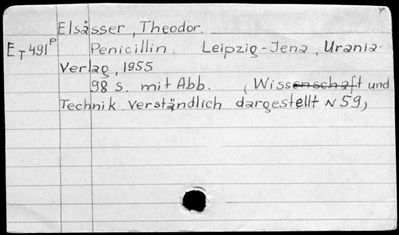 Elsässer, Theodor.
ET491P Penicillin. Leipzig-Jena, Urania-
Verlag, 1955
98 s. mit Abb. (Wissenschaft und
Technik verständlich dargestellt N 59)